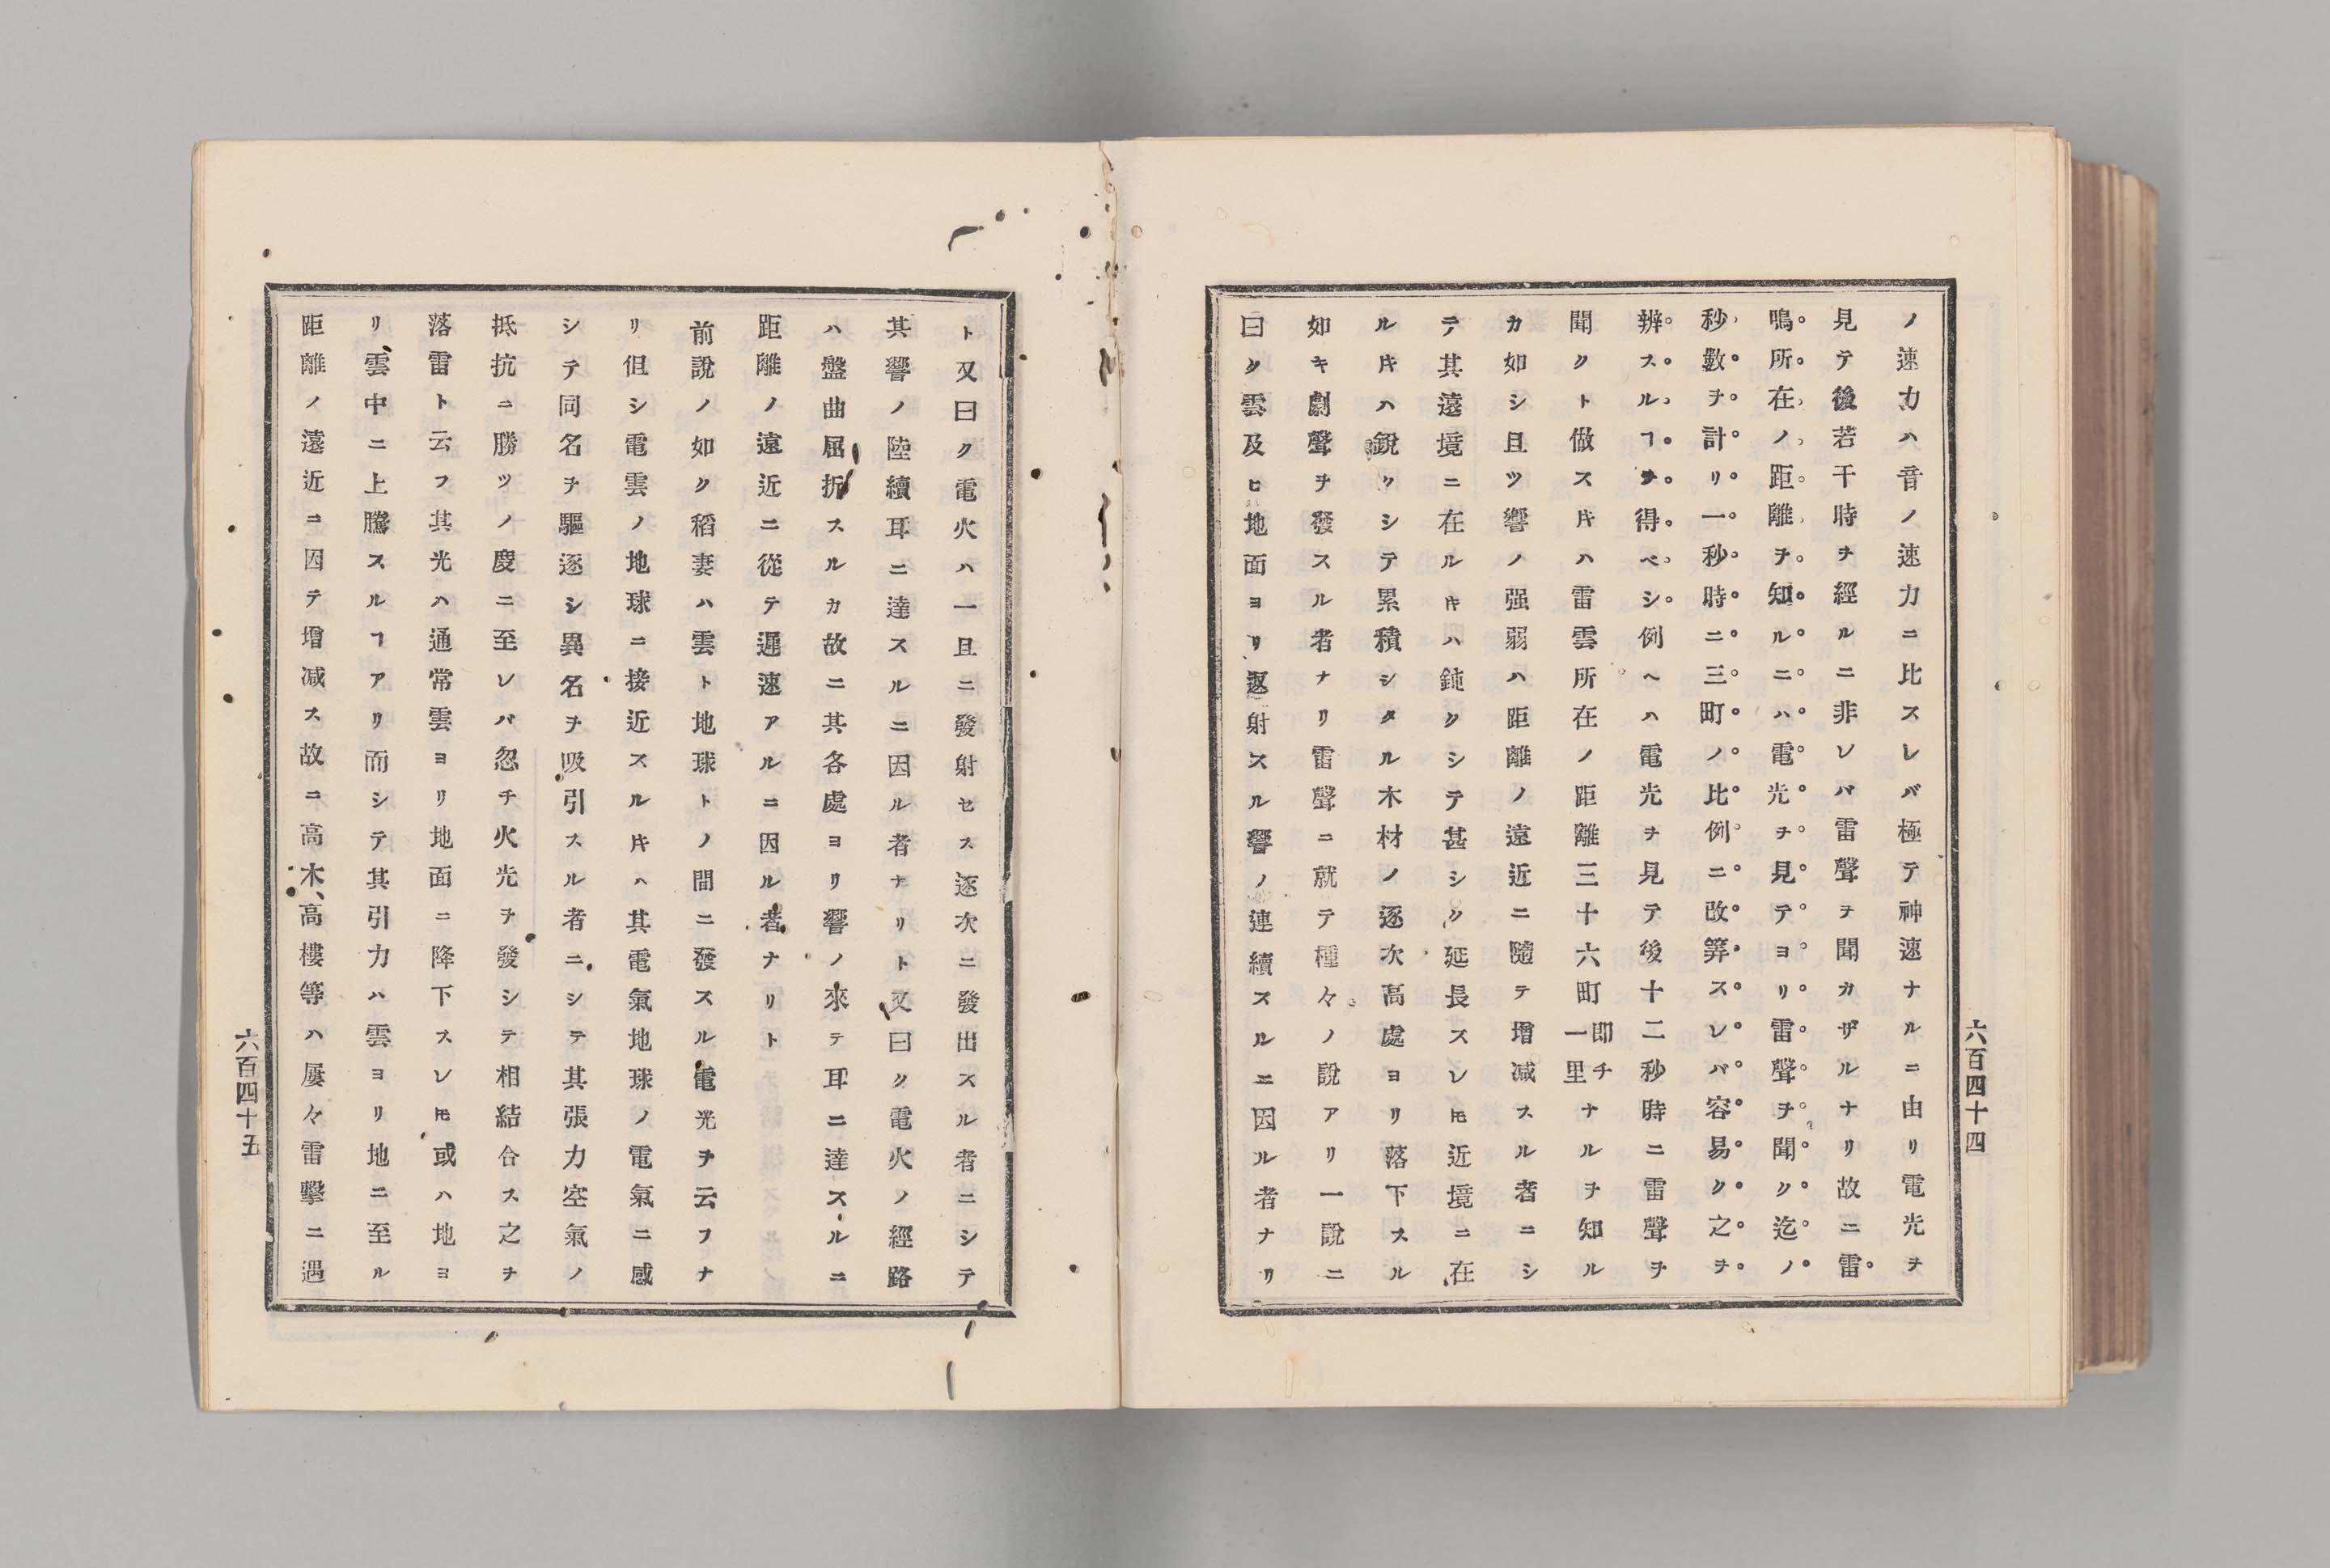 ノ速力ハ音ノ速力ニ比スレバ極テ神速ナルニ由リ電光ヲ
見テ後若干時ヲ經ルニ非レバ雷聲ヲ聞カザルナリ故ニ雷
鳴所在ノ距離ヲ知ルニハ電光ヲ見テヨリ雷聲ヲ聞ク迄ノ
秒數ヲ計リ一秒時ニ三町ノ比例ニ改筭スレバ容易ク之ヲ
辨スルヿヲ得ベシ例ヘハ電光ヲ見テ後十二秒時ニ雷聲ヲ
聞クト倣スキハ雷雲所在ノ距離三十六町即チ一里ナルヲ知ル
カ如シ且ツ響ノ强弱ハ距離ノ遠近ニ隨テ增減スル者ニシ
テ其遠境ニ在ルキハ鈍クシテ甚シク延長スレ𪜈近境ニ在
ルキハ銳クシテ累積シタル木材ノ逐次高處ヨリ落下スル
如キ劇聲ヲ發スル者ナリ雷聲ニ就テ種々ノ說アリ一說ニ
曰ク雲及ヒ地面ヨリ返射スル響ノ連續スルニ因ル者ナリ
六百四十四
ト又曰ク電火ハ一且ニ發射セス逐次ニ發出スル者ニシテ
其響ノ陸續耳ニ達スルニ因ル者ナリト又曰ク電火ノ經路
ハ盤曲屈折スルカ故ニ其各處ヨリ響ノ來テ耳ニ達スルニ
距離ノ遠近ニ從テ遲速アルニ因ル者ナリト
前說ノ如ク稻妻ハ雲ト地球トノ間ニ發スル電光ヲ云フナ
リ但シ電雲ノ地球ニ接近スルキハ其電氣地球ノ電氣ニ感
シテ同名ヲ驅逐シ異名ヲ吸引スル者ニシテ其張力空氣ノ
抵抗ニ勝ツノ慶ニ至レバ忽チ火光ヲ發シテ相結合ス之ヲ
落雷ト云フ其光ハ通常雲ヨリ地面ニ降下スレ𪜈或ハ地ヨ
リ雲中ニ上騰スルヿアリ而シテ其引力ハ雲ヨリ地ニ至ル
距離ノ遠近ニ因テ增減ス故ニ高木、高樓等ハ屢々雷擊ニ遇
六百四十五